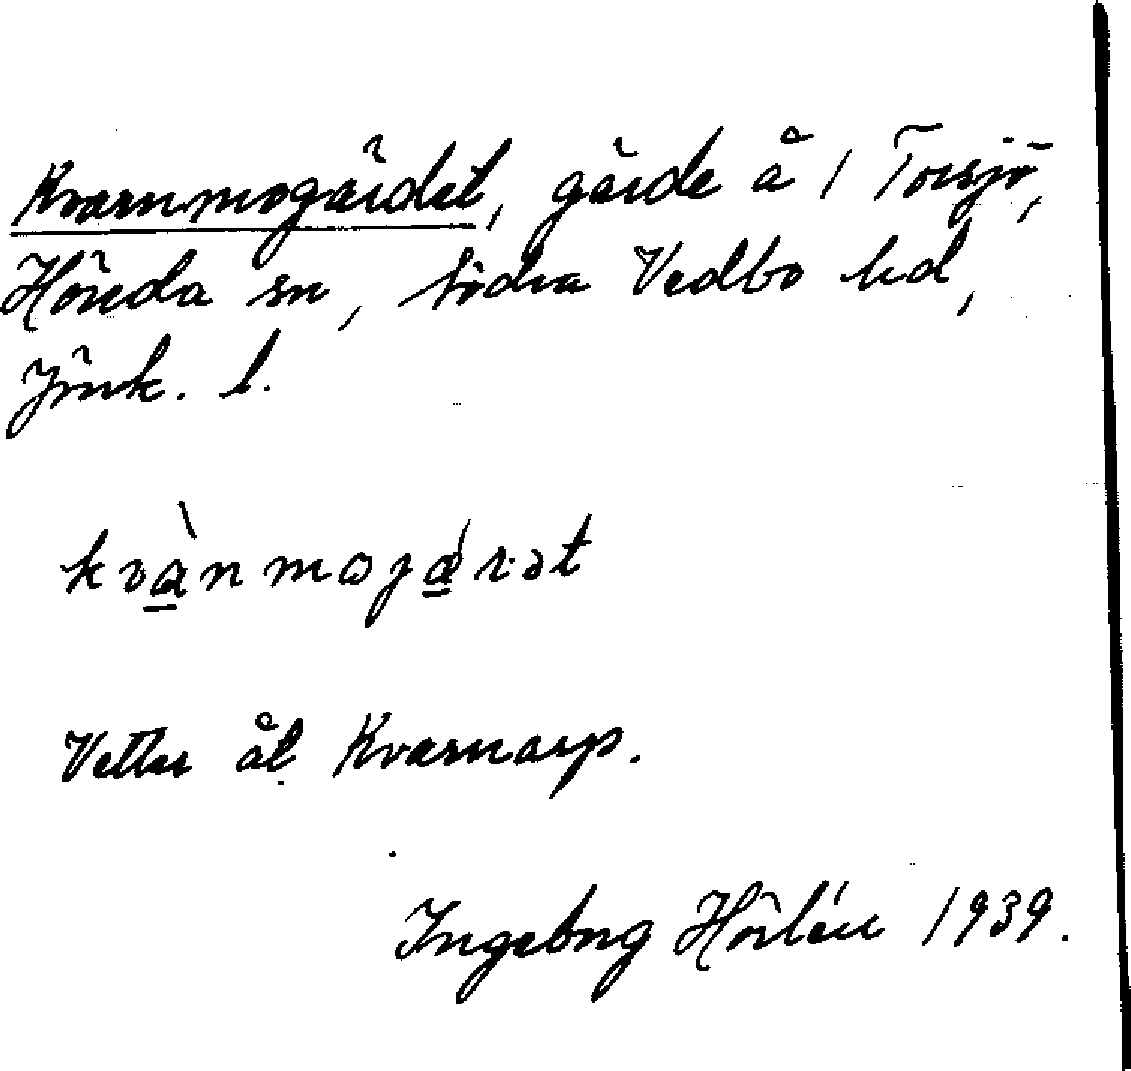 Kvarnmogärdet, gärde å 1 Torsjö,
Höreda sn, Södra Vedbo hd,
Jönk. l.
kvànmojárət
Vetter åt Kvarnarp.
Ingeborg Hörlén 1939.